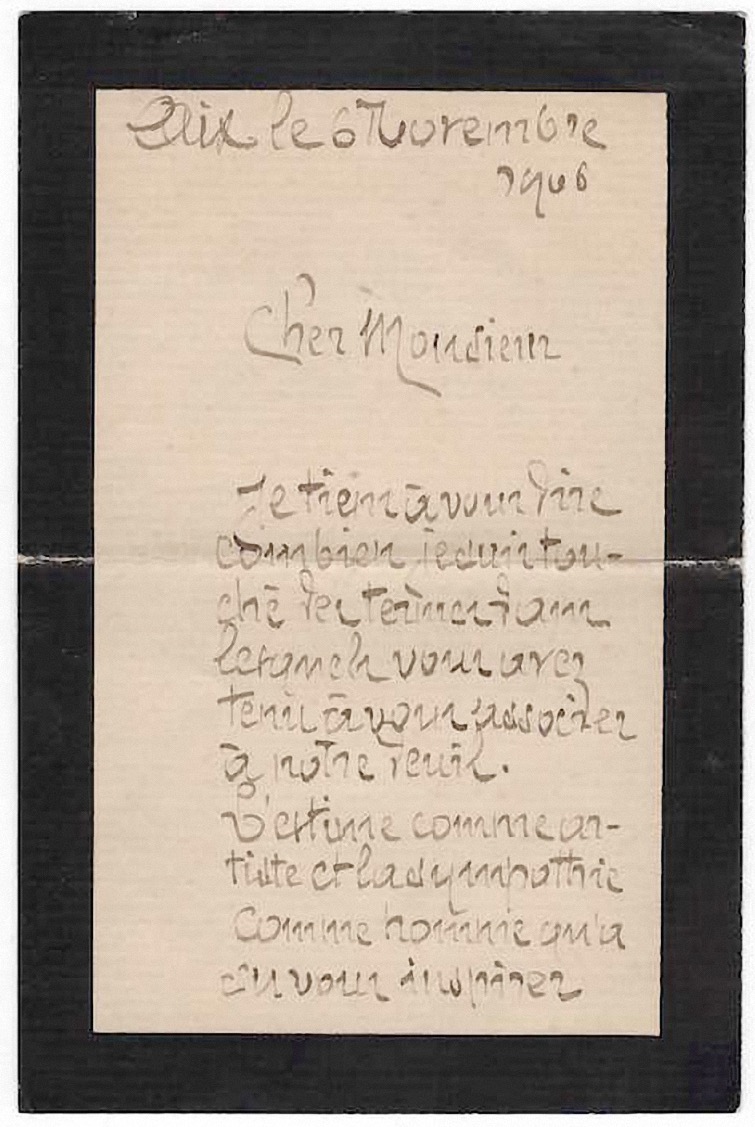 Aix le 6 Novembre
1906
Cher Monsieur
Je tiens à vous dire
combien je suis tou-
ché des termes dans
lesquels vous avez
tenu à vous associer
à notre deuil.
L'estime comme ar-
tiste et la sympathie
comme homme qu'a
su vous inspirer